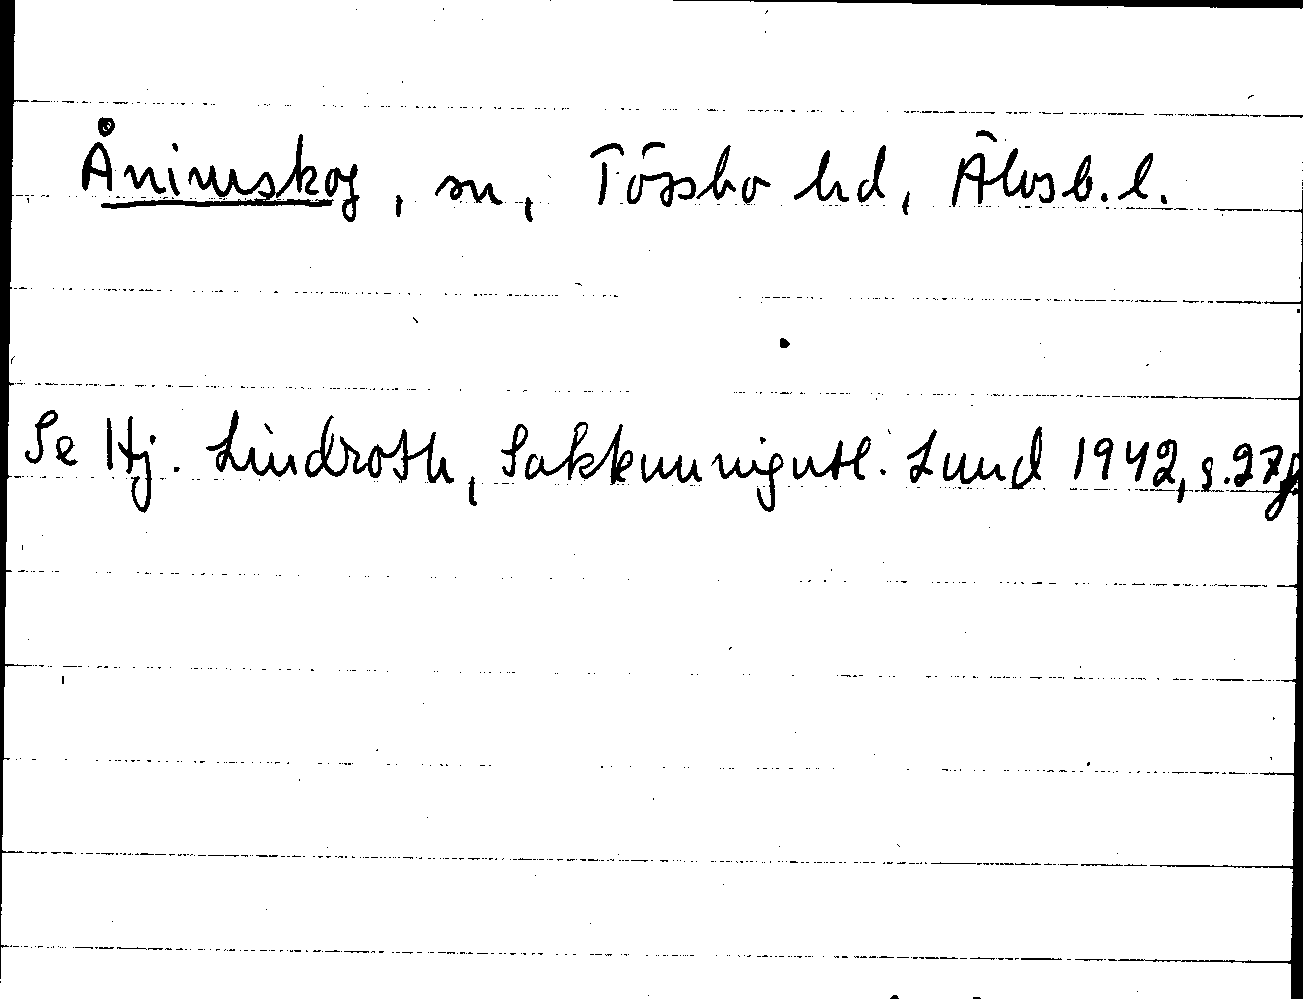 Ånimskog, sn, Tössbo hd, Älvsb. l.
Se Hj. Lindroth, Sakkunnigutl. Lund 1942, s. 27f.